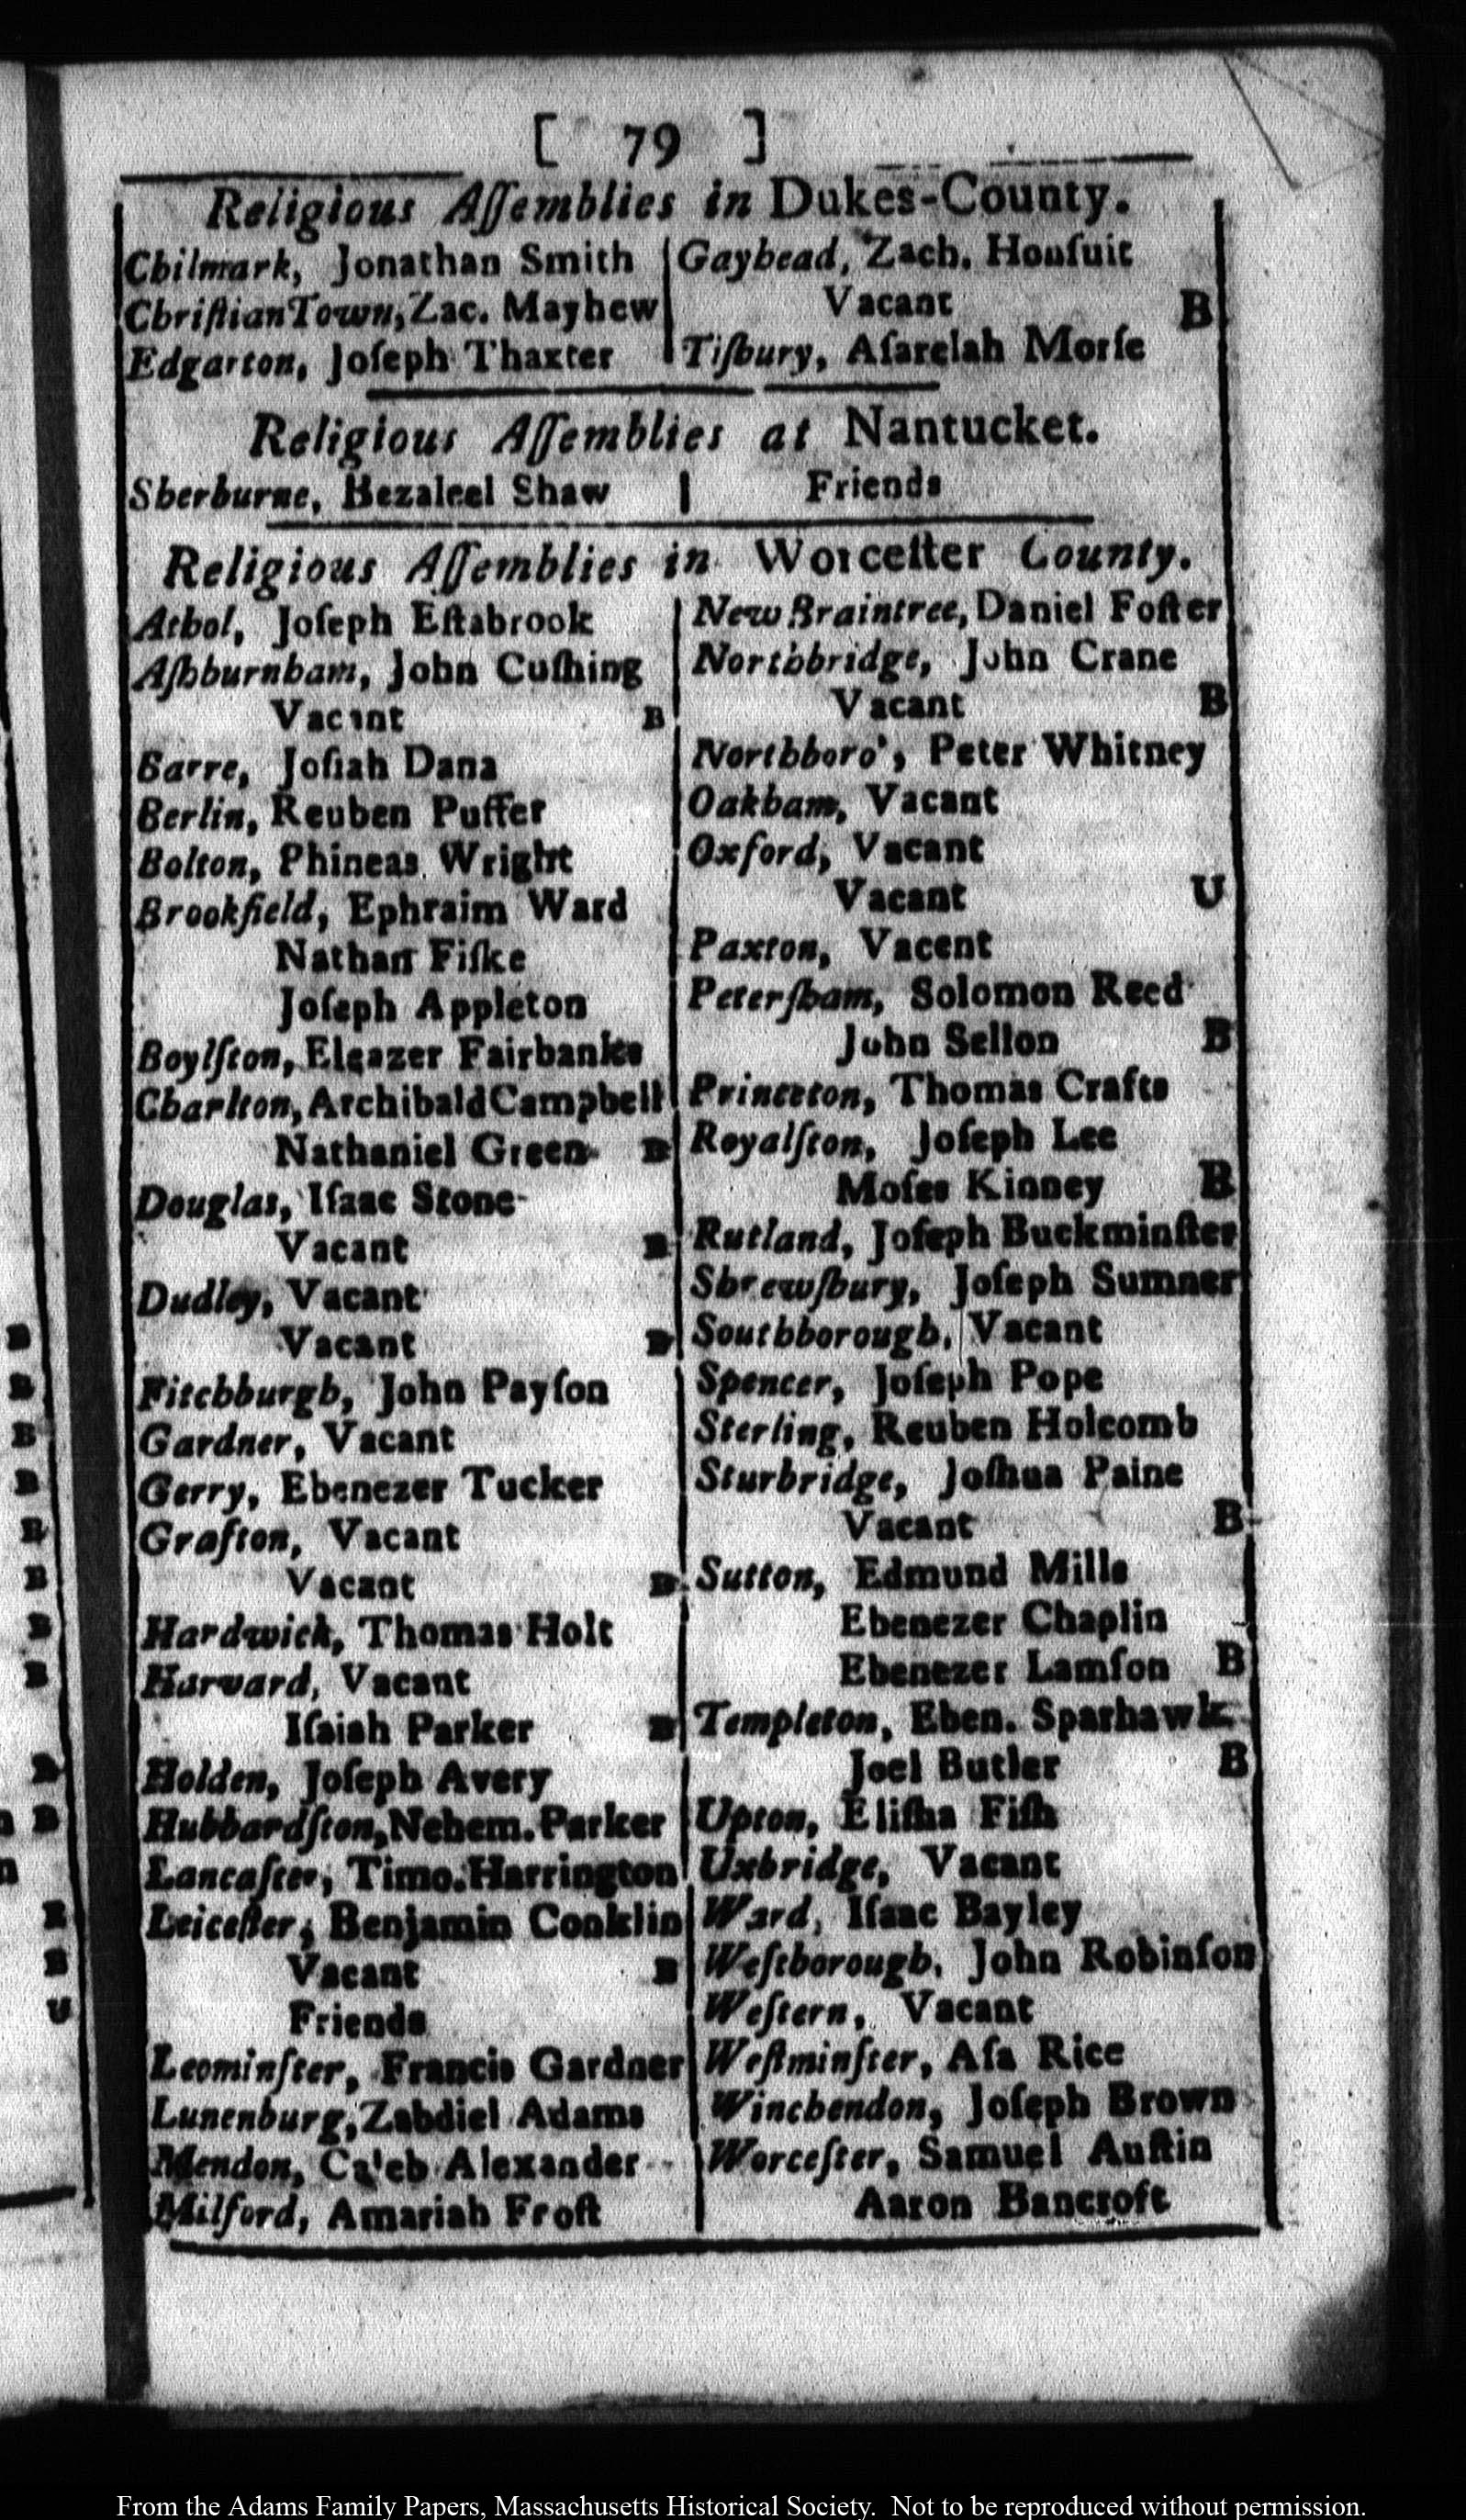 [ 79 ]
Religious Aſſemblies in Dukes-County.
Chilmark, Jonathan Smith
ChriſtianTown, Zac. Mayhew
Edgarton, Joſeph Thaxter
Gayhead, Zach. Honſuit
Vacant B
Tiſbury, Aſarelah Morſe
Religious Aſſemblies at Nantucket.
Sherburne, Bezaleel Shaw
Friends
Religious Aſſemblies in Worceſter County.
Athol, Joſeph Eſtabrook
Aſhburnham, John Cuſhing
Vacant B
Barre, Joſiah Dana
Berlin, Reuben Puffer
Bolton, Phineas Wright
Brookfield, Ephraim Ward
Nathan Fiſke
Joſeph Appleton
Boylſton, Eleazer Fairbanks
Charlton, Archibald Campbell
Nathaniel Green B
Douglas, Iſaac Stone
Vacant B
Dudley, Vacant
Vacant B
Fitchburgh, John Payſon
Gardner, Vacant
Gerry, Ebenezer Tucker
Grafton, Vacant
Vacant B
Hardwick, Thomas Holt
Harvard, Vacant
Iſaiah Parker B
Holden, Joſeph Avery
Hubbardſton, Nehem. Parker
Lancaſter, Timo. Harrington
Leiceſter, Benjamin Conklin
Vacant B
Friends
Leominſter, Francis Gardner
Lunenburg, Zabdiel Adams
Mendon, Caleb Alexander
Milford, Amariah Froſt
New Braintree, Daniel Foſter
Northbridge, John Crane
Vacant B
Northboro', Peter Whitney
Oakham, Vacant
Oxford, Vacant
Vacant U
Paxton, Vacent
Peterſham, Solomon Reed
John Sellon B
Princeton, Thomas Crafts
Royalſton, Joſeph Lee
Moſes Kinney B
Rutland, Joſeph Buckminſter
Shrewſbury, Joſeph Sumner
Southborough, Vacant
Spencer, Joſeph Pope
Sterling, Reuben Holcomb
Sturbridge, Joſhua Paine
Vacant B
Sutton, Edmund Mills
Ebenezer Chaplin
Ebenezer Lamſon B
Templeton, Eben. Sparhawk
Joel Butler B
Upton, Eliſha Fiſh
Uxbridge, Vacant
Ward, Iſaac Bayley
Weſtborough, John Robinſon
Weſtern, Vacant
Weſtminſter, Aſa Rice
Winchendon, Joſeph Brown
Worceſter, Samuel Auſtin
Aaron Bancroft
From the Adams Family Papers, Massachusetts Historical Society. Not to be reproduced without permission.